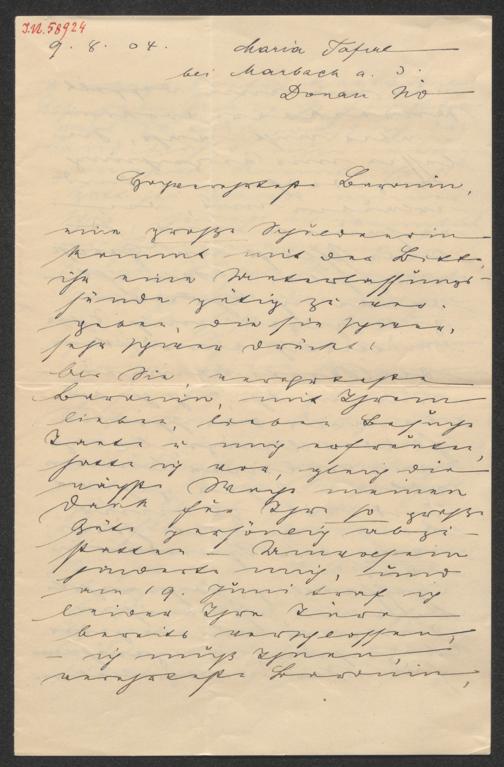 I.N. 58924
9. 8. 04. Maria Taferl
bei Marbach a. d.
Donau NÖ
Hochverehrteste Baronin,
eine große Schuldnerin
kommt mit der Bitte,
ihr eine Unterlassungs-
sünde gütig zu ver-
geben, die sie schwer,
sehr schwer drückt!
Als Sie, verehrteste
Baronin, mit Ihrem
lieben, lieben Besuche
Tante u mich erfreuten,
hatte ich vor, gleich die
nächste Woche meinen
Dank für Ihre so große
Güte persönlich abzu-
statten – Unwohlsein
hinderte mich, und
am 19. Juni traf ich
leider Ihre Türe
bereits verschlossen,
– ich muß Ihnen,
verehrteste Baronin,